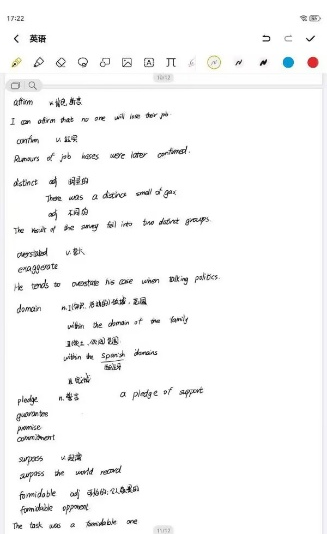 17:22
英语
10/12
affirm v.肯定,断言
I can affirm that no one will lose their job.
confirm v.证实
Rumours of job losses were later confirmed.
distinct adj 明显的
There was a distinct smell of gas
adj 不同的
The result of the survey fell into two distinct groups.
overstated v.夸大
exaggerate
He tends to overstate his case when talking politics.
domain n.
within the domain of the family
within the Spanish domains
pledge n.誓言 a pledge of support
guarantee
promise
commitment
surpass v.超越
surpass the world record
formidable adj 可怕的;令人敬畏的
formidable opponent
The task was a formidable one
11/12